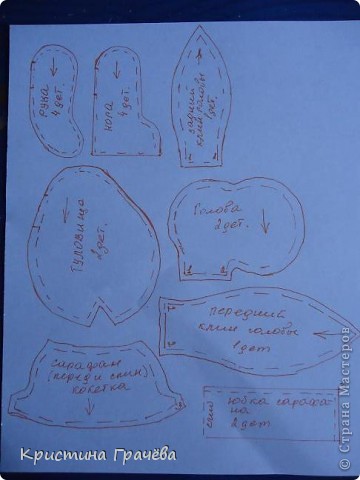 рука
4 дет.
нога
4 дет.
задний
клин головы
1дет.
Туловище
2дет.
Голова
2дет.
1
2
передний
клин головы
1 дет
сарафан
(перед и спин)
кокетка
юбка сарафа
на
2 дет
Кристина Грачёва
© Страна Мастеров